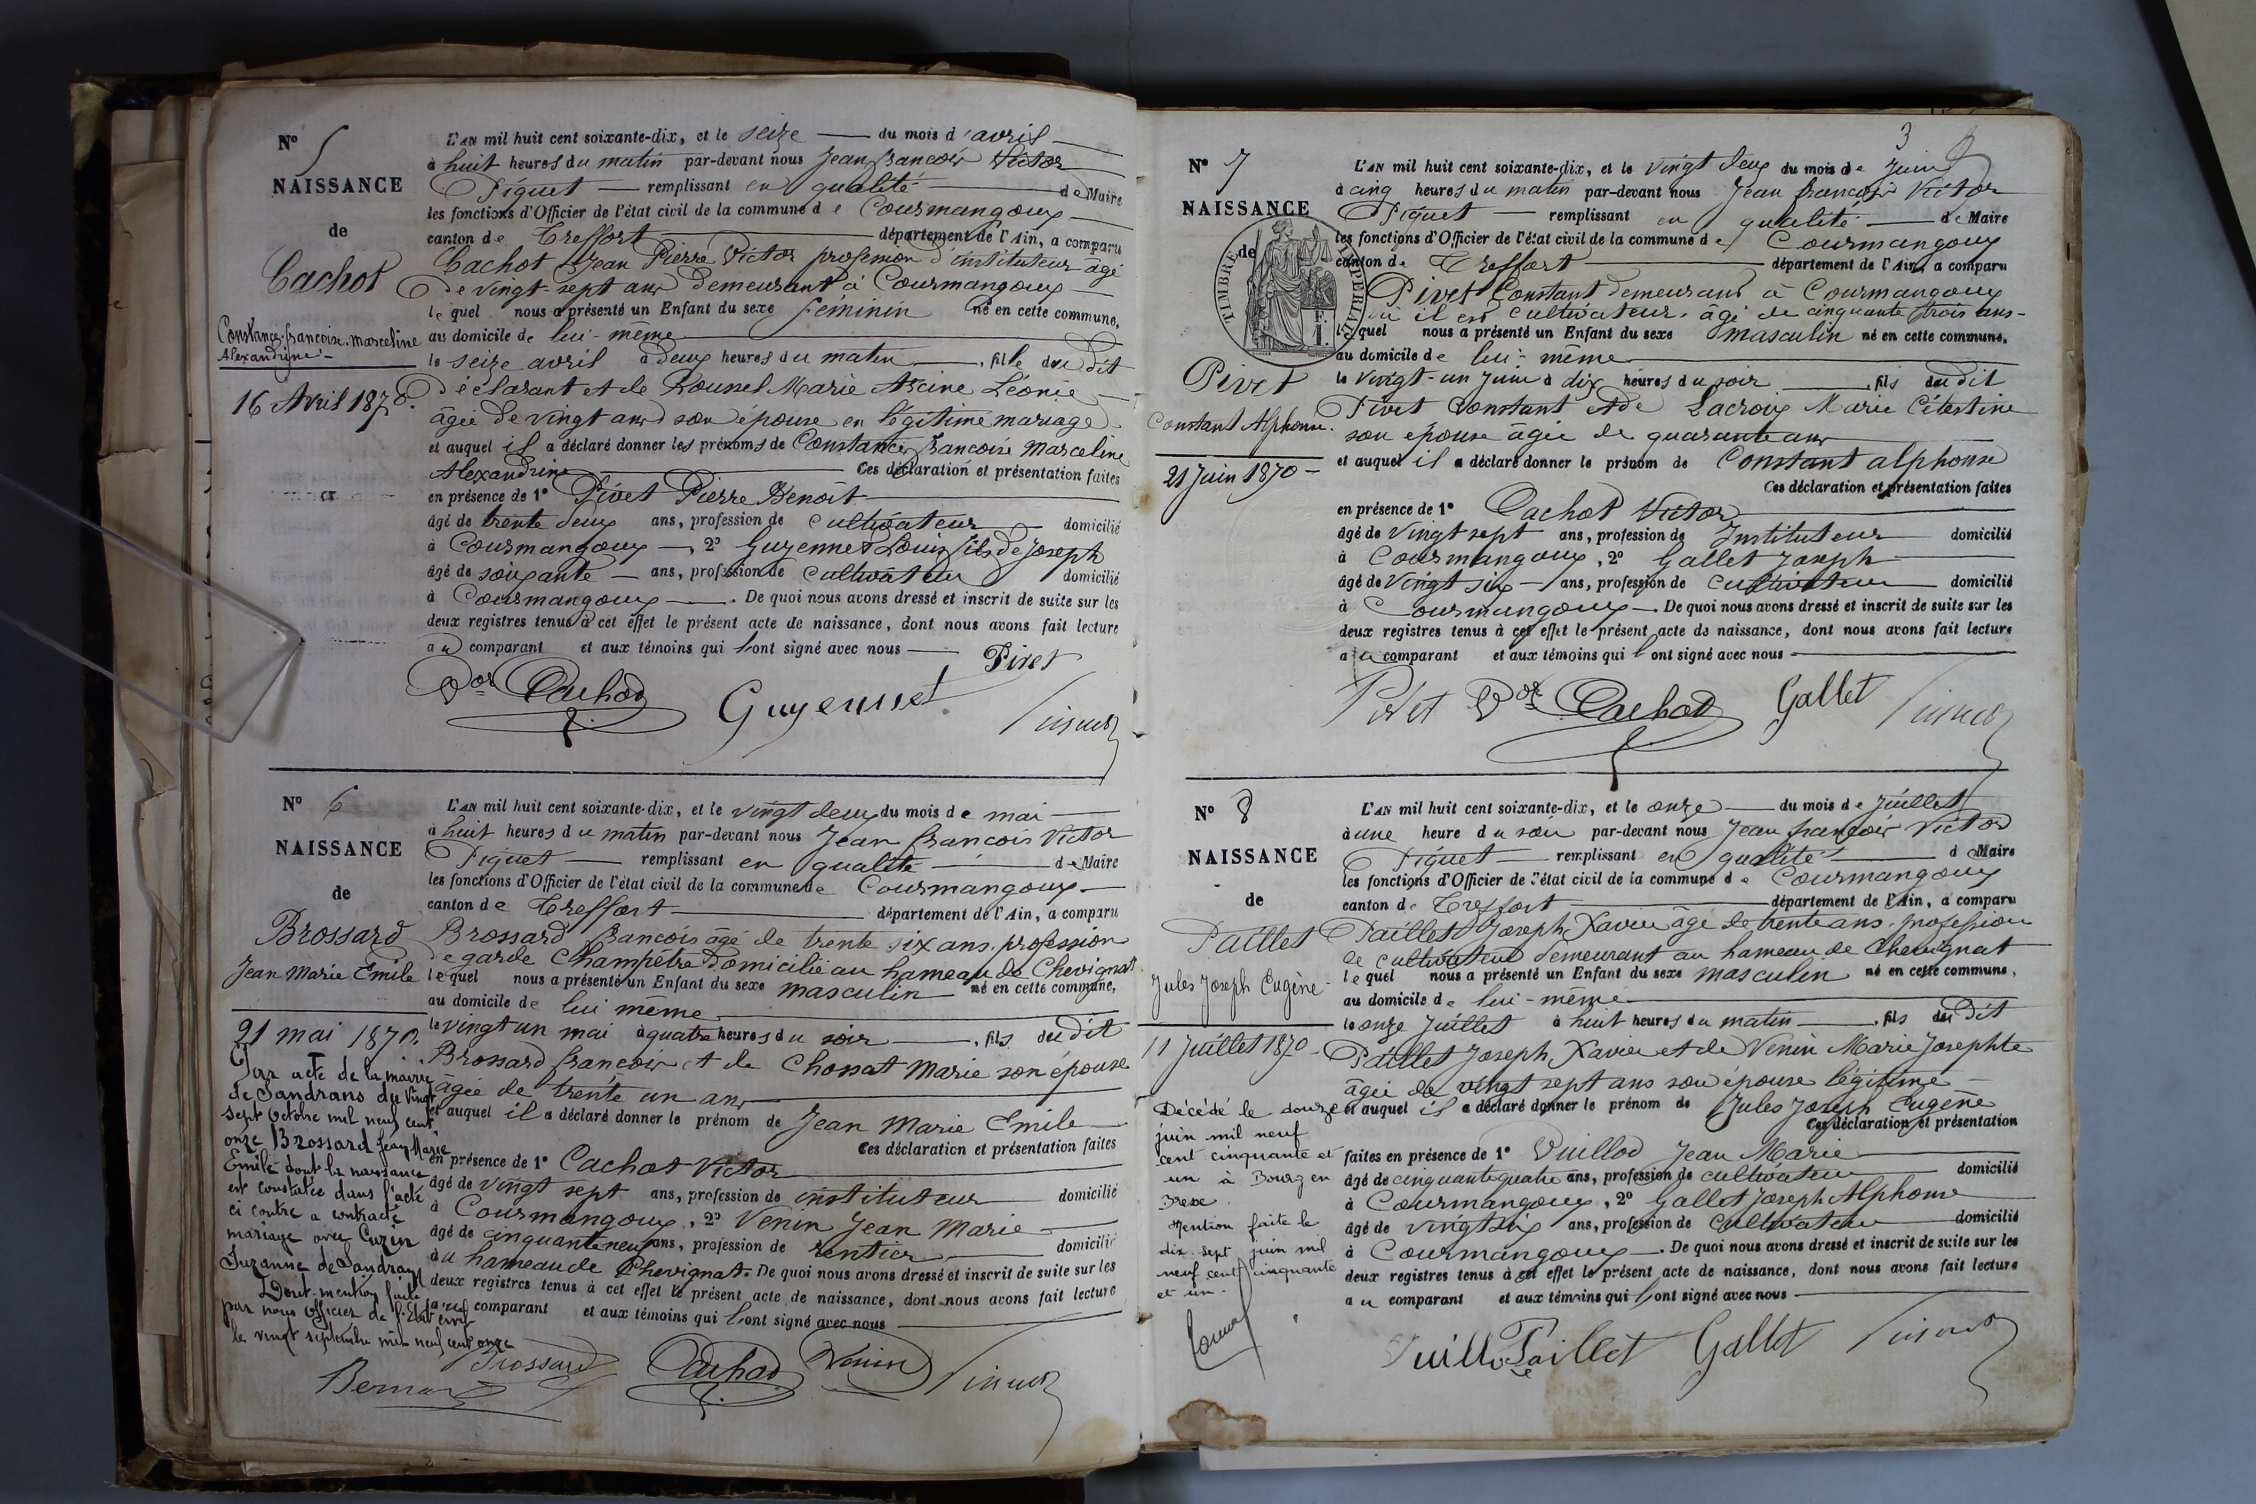 N° 5
NAISSANCE
de
Cachot
Constance françoise marceline
Alexandrine
16 Avril 1870.
L'AN mil huit cent soixante-dix, et le seize du mois d'avril
à huit heures du matin par-devant nous Jean françois Victor
Piguet remplissant en qualité de Maire
les fonctions d'Officier de l'état civil de la commune de Courmangoux
canton de Treffort département de l'Ain, a comparu
Cachot Jean Pierre Victor profession d'instituteur âgé
de vingt-sept ans demeurant à Courmangoux
lequel nous a présenté un Enfant du sexe féminin né en cette commune,
au domicile de lui-même
le seize avril à deux heures du matin, fille du dit
déclarant et de Roussel Marie Arcine Léonie
âgée de vingt ans son épouse en légitime mariage
et auquel il a déclaré donner les prénoms de Constance françoise Marceline
Alexandrine Ces déclaration et présentation faites
en présence de 1° Pivet Pierre Benoit
âgé de trente deux ans, profession de cultivateur domicilié
à Courmangoux, 2° Guyennet Louis fils de Joseph
âgé de soixante ans, profession de cultivateur domicilié
à Courmangoux. De quoi nous avons dressé et inscrit de suite sur les
deux registres tenus à cet effet le présent acte de naissance, dont nous avons fait lecture
au comparant et aux témoins qui l'ont signé avec nous
Pivet
Vor Cachot Guyennet
N° 6
NAISSANCE
de
Brossard
Jean Marie Emile
21 mai 1870.
Par acte de la mairie
de Sandrans du vingt
sept octobre mil neuf cent
onze Brossard Jean Marie
Emile dont la naissance
est constatée dans l'acte
ci contre a contracté
mariage avec Cuzin
Suzanne de Sandrans
Dont mention faite
par nous officier de l'Etat civil
le vingt septembre mil neuf cent onze
L'AN mil huit cent soixante-dix, et le vingt deux du mois de mai
à huit heures du matin par-devant nous Jean françois Victor
Piguet remplissant en qualité de Maire
les fonctions d'Officier de l'état civil de la commune de Courmangoux
canton de Treffort département de l'Ain, a comparu
Brossard françois âgé de trente six ans, profession
de garde champêtre domicilié au hameau de Chevignat
lequel nous a présenté un Enfant du sexe masculin né en cette commune,
au domicile de lui même
le vingt un mai à quatre heures du soir, fils du dit
Brossard françois et de Chossat Marie son épouse
âgée de trente un ans
et auquel il a déclaré donner le prénom de Jean Marie Emile
Ces déclaration et présentation faites
en présence de 1° Cachot Victor
âgé de vingt sept ans, profession de instituteur domicilié
à Courmangoux, 2° Venin Jean Marie
âgé de cinquante neuf ans, profession de rentier domicilié
au hameau de Chevignat. De quoi nous avons dressé et inscrit de suite sur les
deux registres tenus à cet effet le présent acte de naissance, dont nous avons fait lecture
au comparant et aux témoins qui l'ont signé avec nous
Brossard Cachot Venin
3
N° 7
NAISSANCE
de
TIMBRE IMPERIAL
Pivet
Constant Alphonse.
21 Juin 1870
L'AN mil huit cent soixante-dix, et le vingt deux du mois de Juin
à cinq heures du matin par-devant nous Jean françois Victor
Piguet remplissant en qualité de Maire
les fonctions d'Officier de l'état civil de la commune de Courmangoux
canton de Treffort département de l'Ain, a comparu
Pivet Constant demeurant à Courmangoux
où il est cultivateur, âgé de cinquante trois ans
lequel nous a présenté un Enfant du sexe masculin né en cette commune,
au domicile de lui-même
le vingt-un Juin à dix heures du soir, fils du dit
Pivet Constant et de Lacroix Marie Célestine
son épouse âgée de quarante ans
et auquel il a déclaré donner le prénom de Constant alphonse
Ces déclaration et présentation faites
en présence de 1° Cachot Victor
âgé de vingt sept ans, profession de Instituteur domicilié
à Courmangoux, 2° Gallet Joseph
âgé de vingt six ans, profession de cultivateur domicilié
à Courmangoux. De quoi nous avons dressé et inscrit de suite sur les
deux registres tenus à cet effet le présent acte de naissance, dont nous avons fait lecture
au comparant et aux témoins qui l'ont signé avec nous
Pivet Vor Cachot Gallet
N° 8
NAISSANCE
de
Paillet
Jules Joseph Eugène
11 Juillet 1870
Décédé le douze
juin mil neuf
cent cinquante et
un à Bourg en
Bresse.
Mention faite le
dix-sept juin mil
neuf cent cinquante
et un.
L'AN mil huit cent soixante-dix, et le onze du mois de Juillet
à une heure du soir par-devant nous Jean françois Victor
Piguet remplissant en qualité d Maire
les fonctions d'Officier de l'état civil de la commune de Courmangoux
canton de Treffort département de l'Ain, a comparu
Paillet Joseph Xavier âgé de trente ans, profession
de cultivateur demeurant au hameau de Chevignat
lequel nous a présenté un Enfant du sexe masculin né en cette commune,
au domicile de lui-même
le onze Juillet à huit heures du matin, fils du dit
Paillet Joseph Xavier et de Venin Marie Josephte
âgée de vingt sept ans son épouse légitime
et auquel il a déclaré donner le prénom de Jules Joseph Eugène
Ces déclaration et présentation
faites en présence de 1° Vuillod Jean Marie
âgé de cinquante quatre ans, profession de cultivateur domicilié
à Courmangoux, 2° Gallet Joseph Alphonse
âgé de vingt six ans, profession de cultivateur domicilié
à Courmangoux. De quoi nous avons dressé et inscrit de suite sur les
deux registres tenus à cet effet le présent acte de naissance, dont nous avons fait lecture
au comparant et aux témoins qui l'ont signé avec nous
Paillet Gallet